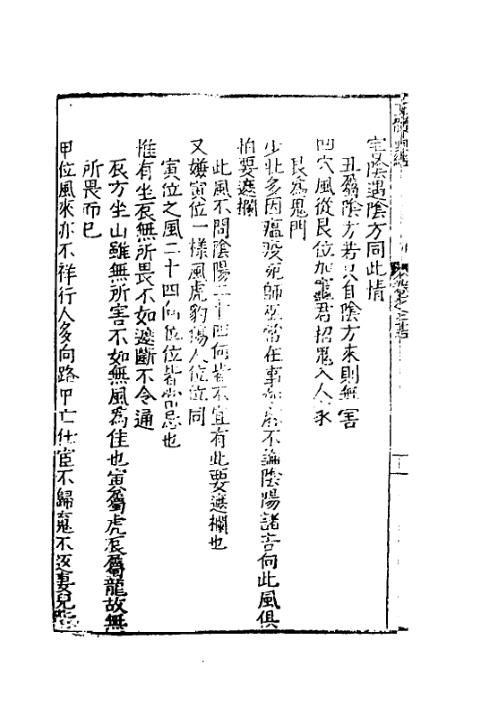 宅陰遇陰方同此情
丑屬陰方若只自陰方來則無害
凹穴風從艮位加竈君招鬼入人家
艮為鬼門
少壯多因瘟疫死師巫常在事不論陰陽諸吉向此風俱
怕要遮欄
此風不問陰陽二十四向皆不宜有此要遮欄也
又嫌寅位一樣風虎豹傷人位位同
寅位之風二十四向位位皆當忌也
惟有坐辰無所畏不如遮斷不令通
辰方坐山雖無所害不如無風為佳也寅屬虎辰屬龍故無
所畏而已
甲位風來亦不祥行人多向路中亡仕宦不歸冤不返妻兒